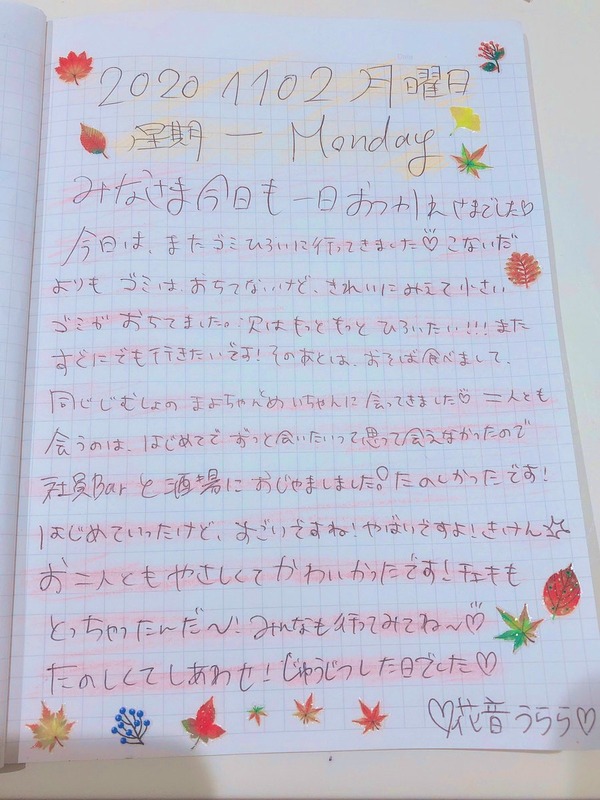 2020 1102 月曜日
星期一 Monday
みなさま今日も一日おつかれさまでした♡
今日は、またゴミひろいに行ってきました♡こないだ
よりも ゴミは おちてないけど、きれいにみえて小さい
ゴミが おちてました。次はもっともっと ひろいたい!!!また
すぐにでも行きたいです!そのあとは、おそば食べまして、
同じじむしょの まよちゃんとめいちゃんに会ってきました♡二人とも
会うのは、はじめてで ずっと会いたいって思って会えなかったので
社員Barと酒場に おじゃましました!たのしかったです!
はじめていったけど、すごいですね!やばいですよ!きけん☆
お二人ともやさしくてかわいかったです!チェキも
とっちゃったんだ〜!みんなも行ってみてね〜♡
たのしくてしあわせ!じゅうじつした日でした♡
♡花音うらら♡